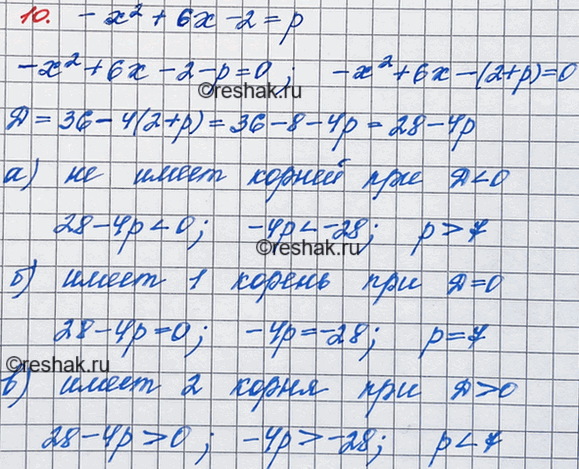 10. -x² + 6x - 2 = p
-x² + 6x - 2 - p = 0; -x² + 6x - (2+p) = 0
©reshak.ru
Д = 36 - 4(2+p) = 36 - 8 - 4p = 28 - 4p
а) не имеет корней при Д < 0
28 - 4p < 0; -4p < -28; p > 7
©reshak.ru
б) имеет 1 корень при Д = 0
28 - 4p = 0; -4p = -28; p = 7
©reshak.ru
в) имеет 2 корня при Д > 0
28 - 4p > 0; -4p > -28; p < 7